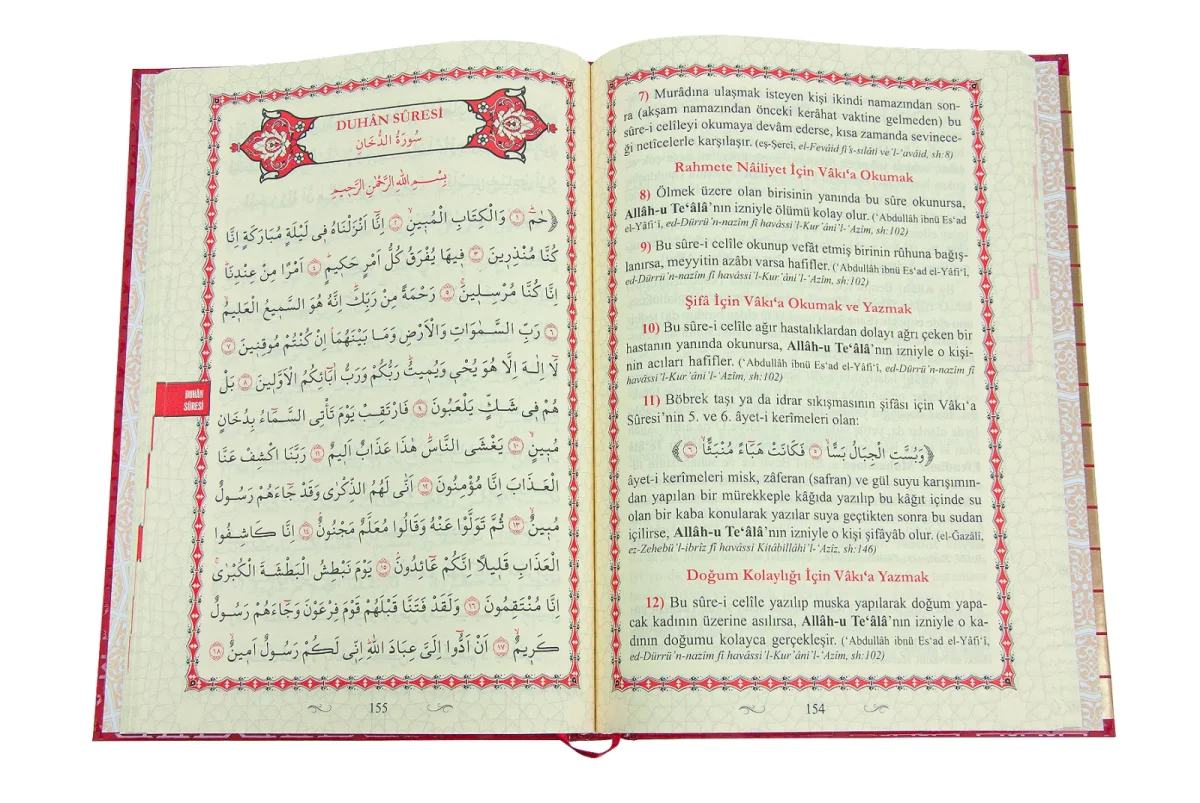 7) Murâdına ulaşmak isteyen kişi ikindi namazından son-
ra (akşam namazından önceki kerâhat vaktine gelmeden) bu
sûre-i celîleyi okumaya devâm ederse, kısa zamanda sevinece-
ği netîcelerle karşılaşır. (eş-Şercî, el-Fevâid fi's-sılâti ve'l-'avâid, sh:8)
Rahmete Nâiliyet İçin Vâkı‘a Okumak
8) Ölmek üzere olan birisinin yanında bu sûre okunursa,
Allâh-u Te‘âlâ’nın izniyle ölümü kolay olur. (‘Abdullâh ibnü Es‘ad
el-Yâfi‘î, ed-Dürrü’n-nazîm fî havâssi’l-Kur’âni’l-‘Azîm, sh:102)
9) Bu sûre-i celîle okunup vefât etmiş birinin rûhuna bağış-
lanırsa, meyyitin azâbı varsa hafifler. (‘Abdullâh ibnü Es‘ad el-Yâfi‘î,
ed-Dürrü’n-nazîm fî havâssi’l-Kur’âni’l-‘Azîm, sh:102)
Şifâ İçin Vâkı‘a Okumak ve Yazmak
10) Bu sûre-i celîle ağır hastalıklardan dolayı ağrı çeken bir
hastanın yanında okunursa, Allâh-u Te‘âlâ’nın izniyle o kişi-
nin acıları hafifler. (‘Abdullâh ibnü Es‘ad el-Yâfi‘î, ed-Dürrü’n-nazîm fî
havâssi’l-Kur’âni’l-‘Azîm, sh:102)
11) Böbrek taşı ya da idrar sıkışmasının şifâsı için Vâkı‘a
Sûresi’nin 5. ve 6. âyet-i kerîmeleri olan:
﴿وَبُسَّتِ الْجِبَالُ بَسًّاۙ ٥ فَكَانَتْ هَبَٓاءً مُنْبَثًّاۙ ٦﴾
âyet-i kerîmeleri misk, zâferan (safran) ve gül suyu karışımın-
dan yapılan bir mürekkeple kâğıda yazılıp bu kâğıt içinde su
olan bir kaba konularak yazılar suya geçtikten sonra bu sudan
içilirse, Allâh-u Te‘âlâ’nın izniyle o kişi şifâyâb olur. (el-Gazâlî,
ez-Zehebü’l-ibrîz fî havâssi Kitâbillâhi’l-‘Azîz, sh:146)
Doğum Kolaylığı İçin Vâkı‘a Yazmak
12) Bu sûre-i celîle yazılıp muska yapılarak doğum yapa-
cak kadının üzerine asılırsa, Allâh-u Te‘âlâ’nın izniyle o ka-
dının doğumu kolayca gerçekleşir. (‘Abdullâh ibnü Es‘ad el-Yâfi‘î,
ed-Dürrü’n-nazîm fî havâssi’l-Kur’âni’l-‘Azîm, sh:102)
154
DUHÂN SÛRESİ
سُورَةُ الدُّخَانِ
بِسْمِ اللهِ الرَّحْمٰنِ الرَّحِيمِ
﴿حٰمٓۜ ١ وَالْكِتَابِ الْمُب۪ينِۙ ٢ اِنَّٓا اَنْزَلْنَاهُ ف۪ي لَيْلَةٍ مُبَارَكَةٍ اِنَّا
كُنَّا مُنْذِر۪ينَ ٣ ف۪يهَا يُفْرَقُ كُلُّ اَمْرٍ حَك۪يمٍۙ ٤ اَمْرًا مِنْ عِنْدِنَاۜ
اِنَّا كُنَّا مُرْسِل۪ينَۚ ٥ رَحْمَةً مِنْ رَبِّكَۜ اِنَّهُ هُوَ السَّم۪يعُ الْعَل۪يمُۙ
٦ رَبِّ السَّمٰوَاتِ وَالْاَرْضِ وَمَا بَيْنَهُمَاۢ اِنْ كُنْتُمْ مُوقِن۪ينَ ٧
لَٓا اِلٰهَ اِلَّا هُوَ يُحْي۪ي وَيُم۪يتُۜ رَبُّكُمْ وَرَبُّ اٰبَٓائِكُمُ الْاَوَّل۪ينَ ٨ بَلْ
هُمْ ف۪ي شَكٍّ يَلْعَبُونَ ٩ فَارْتَقِبْ يَوْمَ تَأْتِي السَّمَٓاءُ بِدُخَانٍ
مُب۪ينٍۙ ١٠ يَغْشَى النَّاسَۜ هٰذَا عَذَابٌ اَل۪يمٌ ١١ رَبَّنَا اكْشِفْ عَنَّا
الْعَذَابَ اِنَّا مُؤْمِنُونَ ١٢ اَنّٰى لَهُمُ الذِّكْرٰى وَقَدْ جَٓاءَهُمْ رَسُولٌ
مُب۪ينٌۙ ١٣ ثُمَّ تَوَلَّوْا عَنْهُ وَقَالُوا مُعَلَّمٌ مَجْنُونٌۢ ١٤ اِنَّا كَاشِفُوا
الْعَذَابِ قَل۪يلًا اِنَّكُمْ عَٓائِدُونَۢ ١٥ يَوْمَ نَبْطِشُ الْبَطْشَةَ الْكُبْرٰىۚ
اِنَّا مُنْتَقِمُونَ ١٦ وَلَقَدْ فَتَنَّا قَبْلَهُمْ قَوْمَ فِرْعَوْنَ وَجَٓاءَهُمْ رَسُولٌ
كَر۪يمٌۙ ١٧ اَنْ اَدُّٓوا اِلَيَّ عِبَادَ اللهِۜ اِنّ۪ي لَكُمْ رَسُولٌ اَم۪ينٌۙ ١٨
DUHÂN
SÛRESİ
155